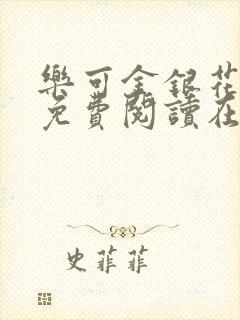 樂可金銀花
免費閱讀在
史菲菲